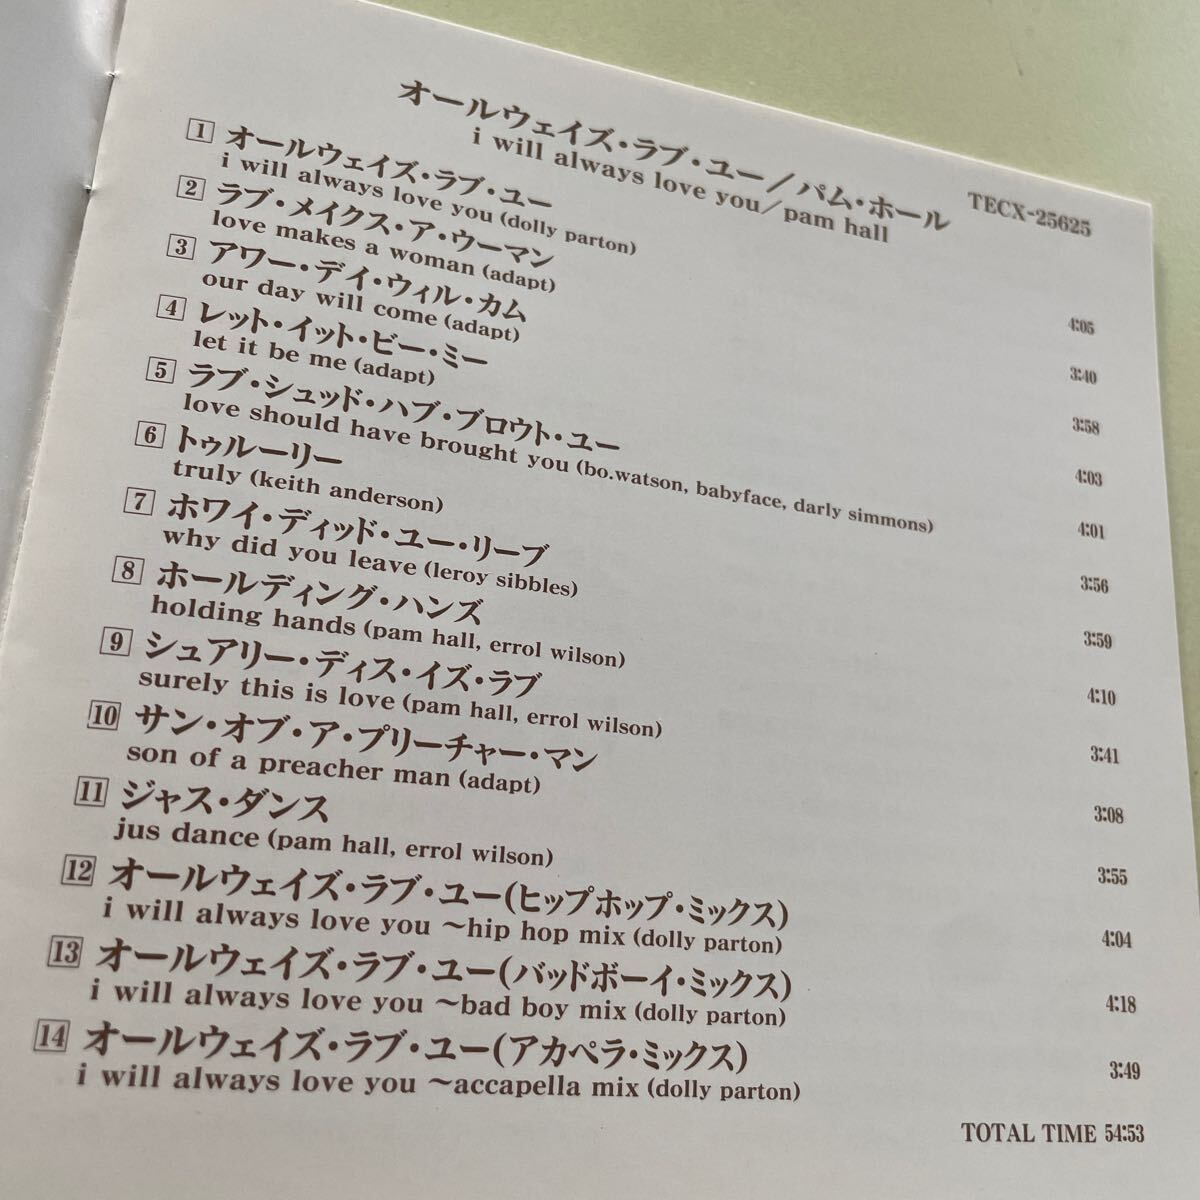 オールウェイズ・ラブ・ユー／パム・ホール
i will always love you／pam hall
TECX-25625
1 オールウェイズ・ラブ・ユー 4:05
i will always love you (dolly parton)
2 ラブ・メイクス・ア・ウーマン 3:40
love makes a woman (adapt)
3 アワー・デイ・ウィル・カム 3:58
our day will come (adapt)
4 レット・イット・ビー・ミー 4:03
let it be me (adapt)
5 ラブ・シュッド・ハブ・ブロウト・ユー 4:01
love should have brought you (bo.watson, babyface, darly simmons)
6 トゥルーリー 3:56
truly (keith anderson)
7 ホワイ・ディッド・ユー・リーブ 3:59
why did you leave (leroy sibbles)
8 ホールディング・ハンズ 4:10
holding hands (pam hall, errol wilson)
9 シュアリー・ディス・イズ・ラブ 3:41
surely this is love (pam hall, errol wilson)
10 サン・オブ・ア・プリーチャー・マン 3:08
son of a preacher man (adapt)
11 ジャス・ダンス 3:55
jus dance (pam hall, errol wilson)
12 オールウェイズ・ラブ・ユー(ヒップホップ・ミックス) 4:04
i will always love you 〜hip hop mix (dolly parton)
13 オールウェイズ・ラブ・ユー(バッドボーイ・ミックス) 4:18
i will always love you 〜bad boy mix (dolly parton)
14 オールウェイズ・ラブ・ユー(アカペラ・ミックス) 3:49
i will always love you 〜accapella mix (dolly parton)
TOTAL TIME 54:53